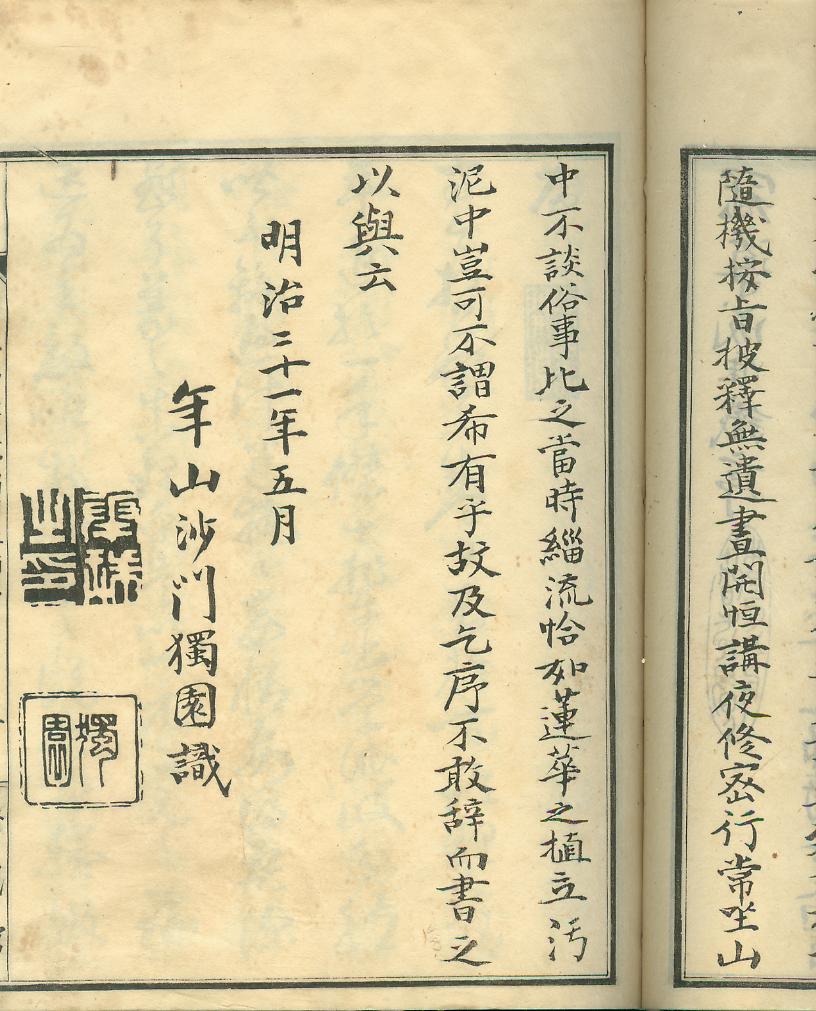 隨機按旨披釋無遺晝開恒講夜修密行常坐山
中不談俗事比之當時緇流恰如蓮華之植立汚
泥中豈可不謂希有乎故及乞序不敢辞而書之
以與云
明治二十一年五月
年山沙門獨園識
之印
獨園